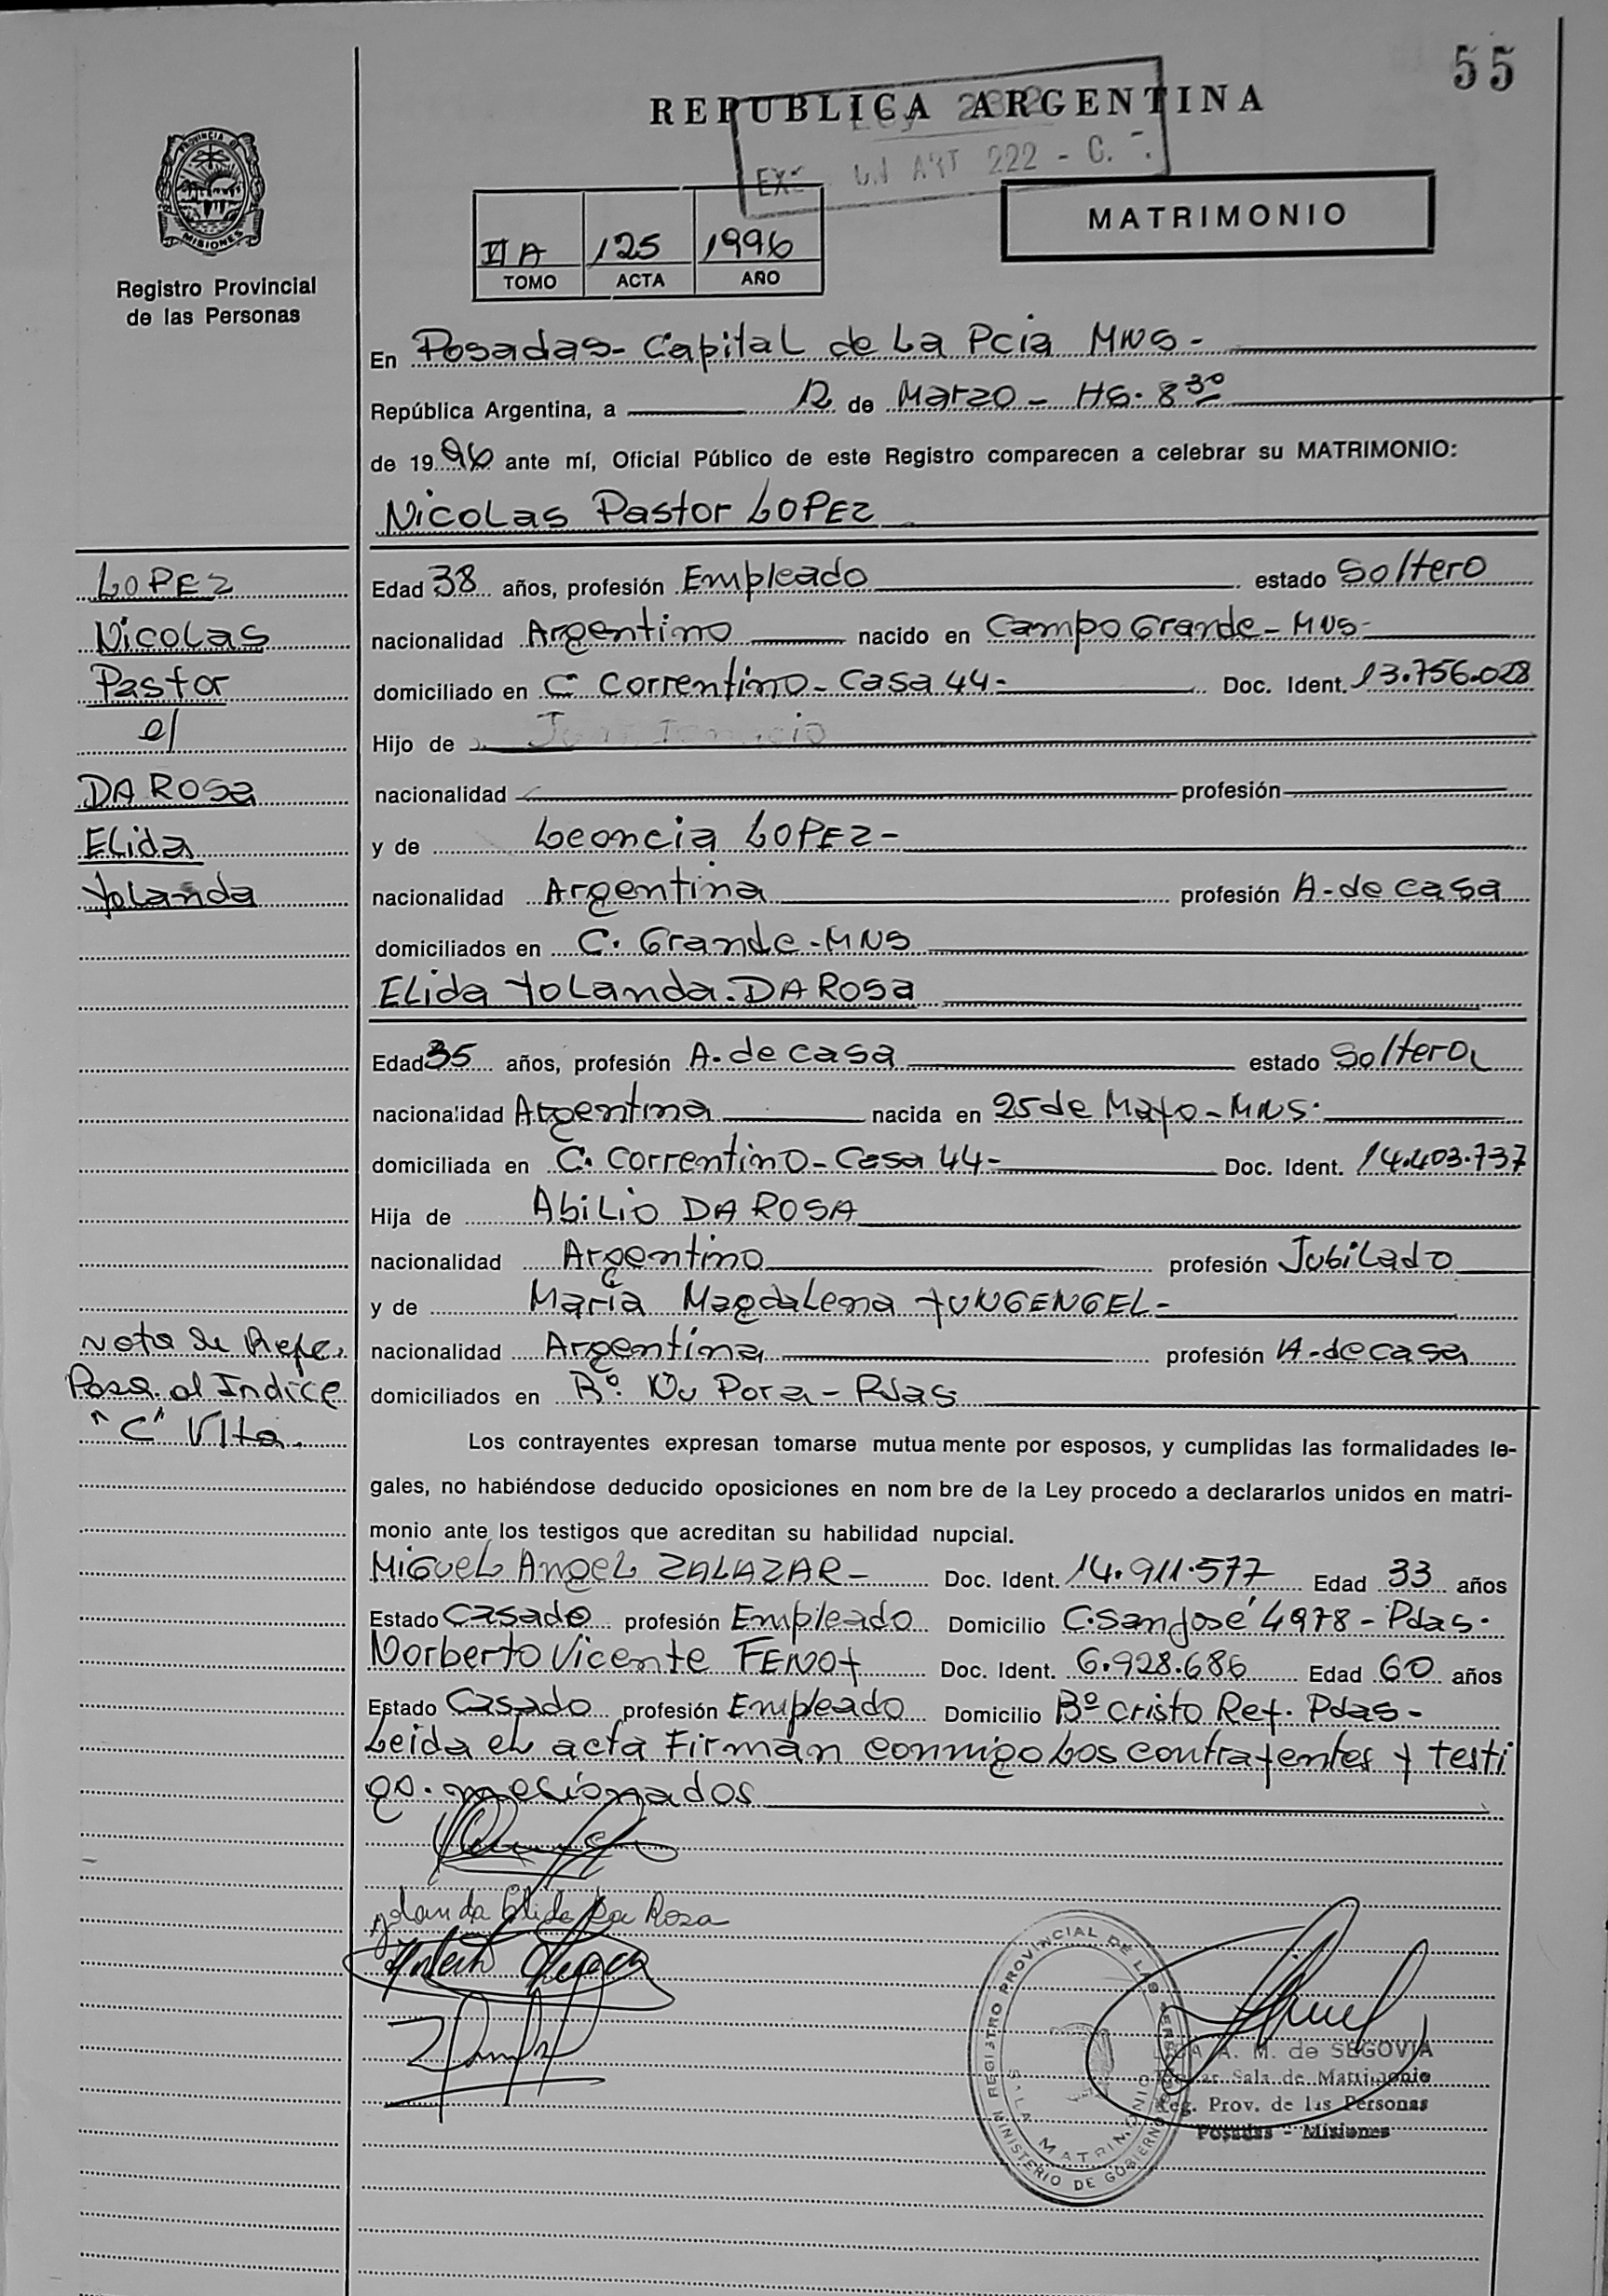 55
REPUBLICA ARGENTINA
ART 222 - C.
MATRIMONIO
II A 125 1996
TOMO ACTA AÑO
PROVINCIA DE
MISIONES
Registro Provincial
de las Personas
En Posadas- Capital de La Pcia MNS-
República Argentina, a 12 de Marzo - HS. 8 30
de 1996 ante mí, Oficial Público de este Registro comparecen a celebrar su MATRIMONIO:
Nicolas Pastor LOPEZ
LOPEZ
Nicolas
Pastor
c/
DA ROSA
Elida
Yolanda
Edad 38 años, profesión Empleado estado Soltero
nacionalidad Argentino nacido en Campo Grande-MNS-
domiciliado en C° Correntino-Casa 44- Doc. Ident. 13.756.028
Hijo de
nacionalidad profesión
y de Leoncia LOPEZ-
nacionalidad Argentina profesión A-de casa
domiciliados en C. Grande-MNS
Elida Yolanda. DA ROSA
Edad 35 años, profesión A-de casa estado Soltera
nacionalidad Argentina nacida en 25 de Mayo-MNS-
domiciliada en C. Correntino-Casa 44- Doc. Ident. 14.403.737
Hija de Abilio DA ROSA
nacionalidad Argentino profesión Jubilado
y de María Magdalena YUNGENGEL-
nacionalidad Argentina profesión A-de casa
domiciliados en B°. Pora-Pdas
Nota de Refe.
Pasa al Indice
"C" Vlta.
Los contrayentes expresan tomarse mutua mente por esposos, y cumplidas las formalidades le-
gales, no habiéndose deducido oposiciones en nom bre de la Ley procedo a declararlos unidos en matri-
monio ante los testigos que acreditan su habilidad nupcial.
Miguel Angel ZALAZAR- Doc. Ident. 14.911.577 Edad 33 años
Estado Casado profesión Empleado Domicilio C. San José 4978-Pdas.
Norberto Vicente FENOY Doc. Ident. 6.928.686 Edad 60 años
Estado Casado profesión Empleado Domicilio B° Cristo Rey. Pdas-
Leida el acta Firman conmigo los contrayentes y testi
go. mesionados
Yolanda Elida Da Rosa
REGISTRO PROVINCIAL DE LAS PERSONAS
SALA MATRIMONIO
MINISTERIO DE GOBIERNO
A. M. de SEGOVIA
Sala de Matrimonio
Reg. Prov. de las Personas
Posadas - Misiones